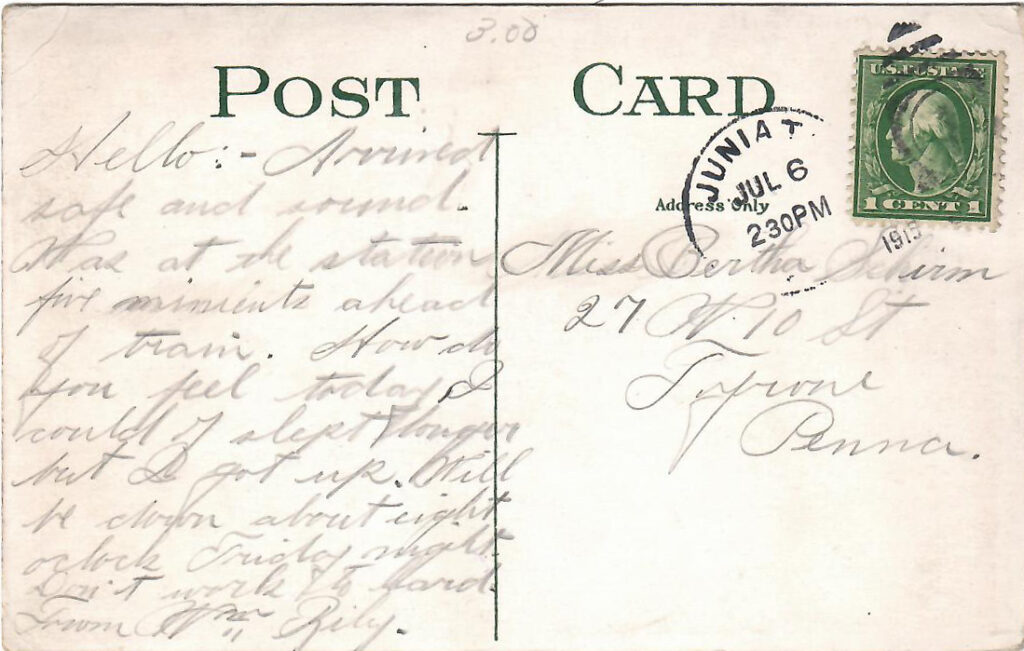 3.00
POST CARD
U.S. POSTAGE
1 CENT 1
JUNIAT
JUL 6
230PM
191
Address Only
Hello:- Arrived
safe and sound.
Was at the station
five minients ahead
of train. How do
you feel today. I
could of slept longer
but I got up. Will
be down about eight
oclock Friday night.
Don't work to hard.
From Wm. Rily.
Miss Bertha Schirm
27 W. 10 St
Tyrone
Penna.